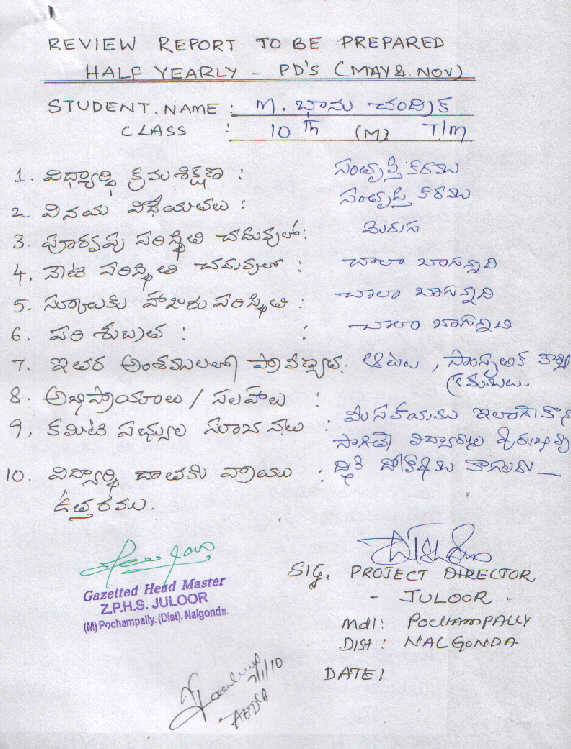 REVIEW REPORT TO BE PREPARED
HALF YEARLY - PD'S (MAY & NOV)
STUDENT.NAME : M. భాను చందర్
CLASS : 10 Th (M) T/m
1. విద్యార్థి క్రమశిక్షణ : సంతృప్తి కరము
2. వినయ విధేయతలు : సంతృప్తి కరము
3. పూర్వపు పరిస్థితి చదువులో: మెరుగు
4. నేటి పరిస్థితి చదువులో : చాలా బాగున్నది
5. స్కూలుకు హాజరు పరిస్థితి : చాలా బాగున్నది
6. పరిశుభ్రత : : చాలా బాగున్నది
7. ఇతర అంశములలో ప్రావీణ్యత. ఆటలు , సాంస్కృతిక కార్య
క్రమములు
8. అభిప్రాయాలు / సలహాలు : మీ సహాయము ఇలాగే
9. కమిటి సభ్యుల సూచనలు : విద్యార్థుల
10. విద్యార్థి దాతకు వ్రాయు :
ఉత్తరము.
Gazetted Head Master
Z.P.H.S. JULOOR
(M) Pochampally, (Dist). Nalgonda.
SIG. PROJECT DIRECTOR
- JULOOR -
Mdl: POCHAMPALLY
DIST : NALGONDA
DATE: